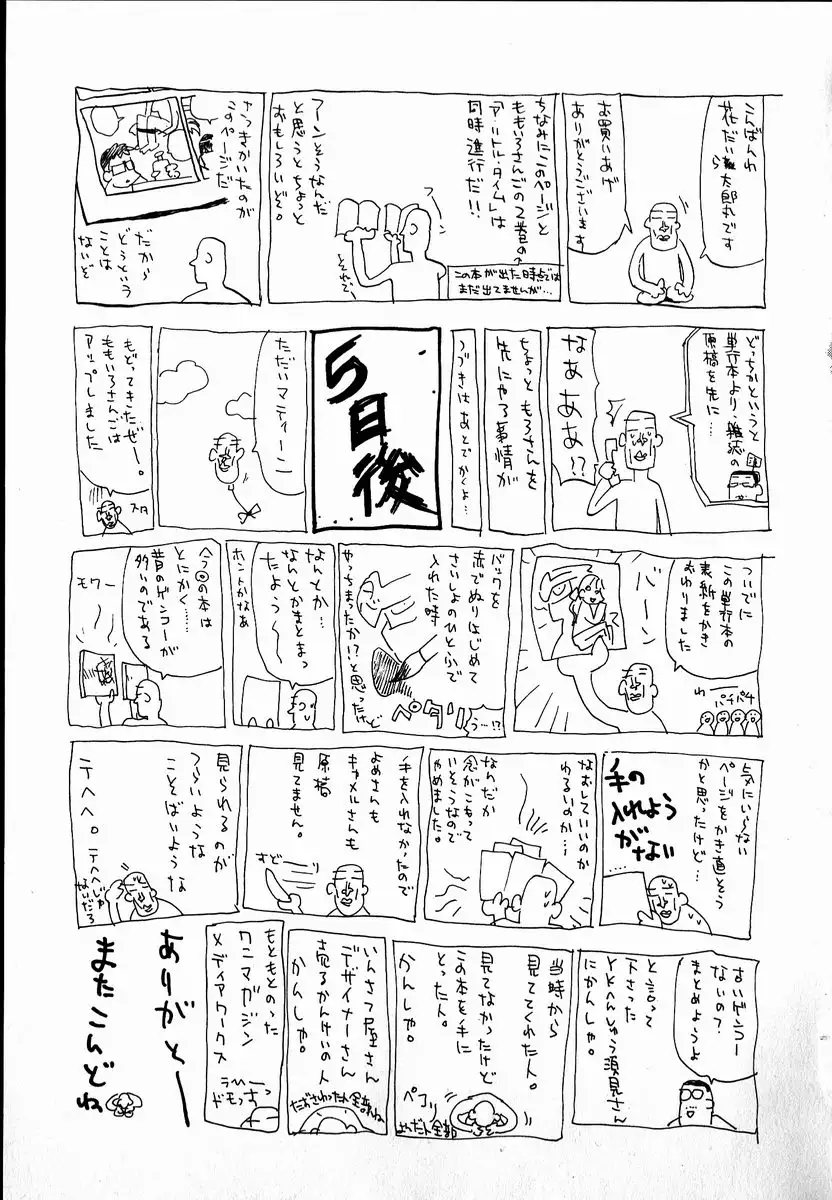 こんばんわ
花だい
太郎丸です
お買いあげ
ありがとうございます
ちなみにこのページと
ももいろさんごの2巻の
「アルトル・タイム」は
同時進行だ!!
この本が出た時点では
まだ出てませんが…
フーンそうなんだ
と思うとちょっと
おもしろいぞ。
それで
さっきかいたのが
このページだ
だから
どうという
ことは
ないぞ
どっちかというと
単行本より、雑誌の
原稿を先に…
なぁああ!?
ちょっとももさんを
先にやる事情が
つづきはあとでかくよ…
5日後
ただいマティーン
もどってきたぜー。
ももいろさんごは
アップしました
スタ
ついでに
この単行本の
表紙をかき
おわりました
バーン
わー
パチパチ
バックを
赤でぬりはじめて
さいしょのひとふで
入れた時
ペタリ
う…!?
やっちまったか!?と思ったけど
なんとか…
なんとかまとまっ
たよう〜
ホントかなあ
今回の本は
とにかく……
昔のゲンコーが
多いのである
モワー
気にいらない
ページをかき直そう
かと思ったけど…
手の
入れよう
がない
…
なおしていいのか
わるいのか…
なんだか
念がこもって
いそうなので
やめました。
手を入れなかったので
よめさんも
キャメルさんも
原稿
見てません。
すどーり
見られるのが
つらいような
こそばいような
テヘヘ。
テヘヘじゃ
ないだろ
古いゲンコー
ないの?
まとめようよ
と言って
下さった
YKへんしゅう須見さん
にかんしゃ。
当時から
見ててくれた人。
見てなかったけど
この本を手に
とった人。
かんしゃ。
ペコリ
よんだ人全部
いんさつ屋さん
デザイナーさん
売るかんけいの人
かんしゃ。
たずさわった人全部ね
もともとのった
ワニマガジン
メディアワークス
ドモっさっ
ありがとー
またこんどね